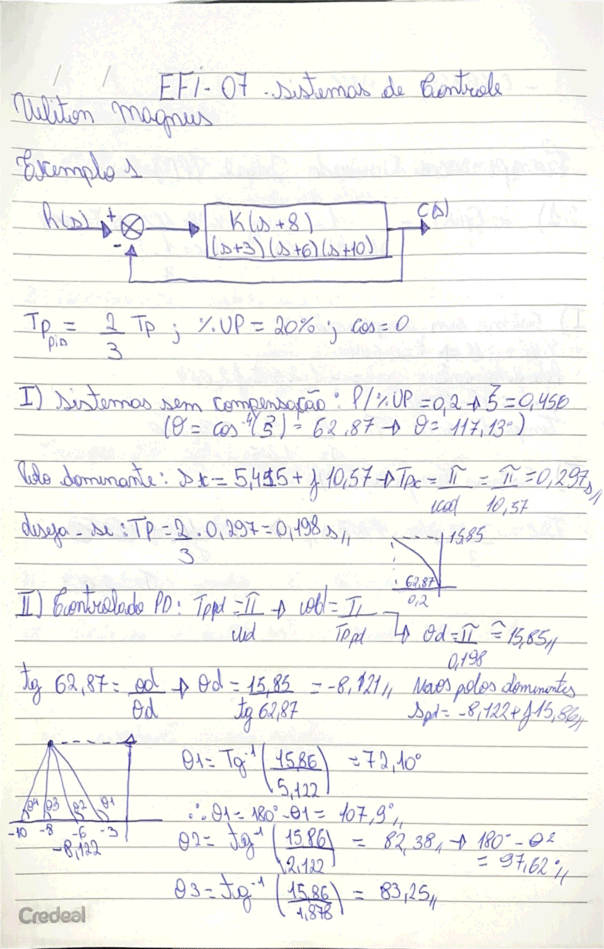 / /
EFI-07 - Sistemas de Controle
Ueliton Magnus
Exemplo 1
h(s) + - K(s+8) C(s)
(s+3)(s+6)(s+10)
Tp PID = 2/3 Tp ; %UP = 20% ; cos = 0
I) Sistemas sem compensação: P/%UP = 0,2 → ξ = 0,456
(θ = cos⁻¹(ξ) = 62,87 → θ = 117,13°)
Polo dominante: sx = 5,415 + j10,57 → Tpx = π/ωd = π/10,57 = 0,297 s//
deseja-se: TP = 2/3 . 0,297 = 0,198 s//
15,85
62,87
0,2
II) Controlado PD: Tppd = π/ωd → ωd = π/Tppd → θd = π/0,198 ≅ 15,85//
tg 62,87 = ωd/θd → θd = 15,85/tg 62,87 = -8,121// Novos polos dominantes
spd = -8,122 + j15,86//
θ1 = Tg⁻¹(15,86/5,122) = 72,10°
∴ θ1 = 180° - θ1 = 107,9°//
θ4 θ3 θ2 θ1
-10 -8 -6 -3
-8,122
θ2 = tg⁻¹(15,86/2,122) = 82,38// → 180° - θ2
= 97,62°//
θ3 = tg⁻¹(15,86/1,878) = 83,25//
Credeal